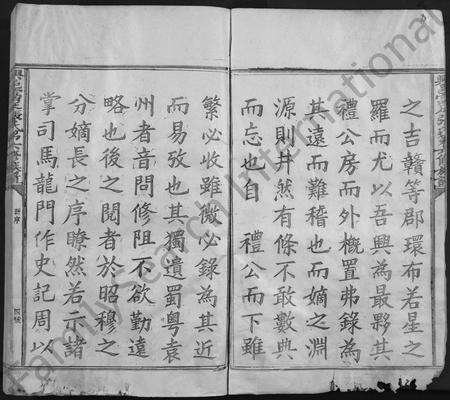 之吉贛等郡環布若星之
羅而尤以吾興為最夥其
禮公房而外槪置弗錄為
其遠而難稽也而嫡之淵
源則井然有條不敢數典
而忘也自　禮公而下雖
繁必收雖微必錄為其近
而易攷也其獨遺蜀粤袁
州者音問修阻不欲勤遠
略也後之閱者於昭穆之
分嫡長之序瞭然若示諸
掌司馬龍門作史記周以
新序
FamilySearch International